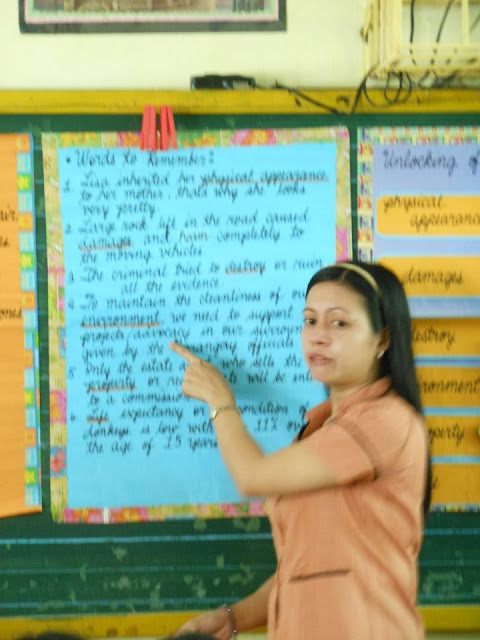 • Words to Remember:
1. Lisa inherited her physical appearance
to her mother, that's why she looks
very pretty.
2. Large rock left in the road caused
damages and harm completely to
the moving vehicles
3. The criminal tried to destroy or ruin
all the evidence.
4. To maintain the cleanliness of
environment we need to support
projects, advocacy in our
given by the officials
5. Only the estate who sells the
property or will be
to a commission
6. Life expectancy condition of
donkeys is low with 11%
the age of 15 years
Unlocking of
physical
appearance
damages
destroy